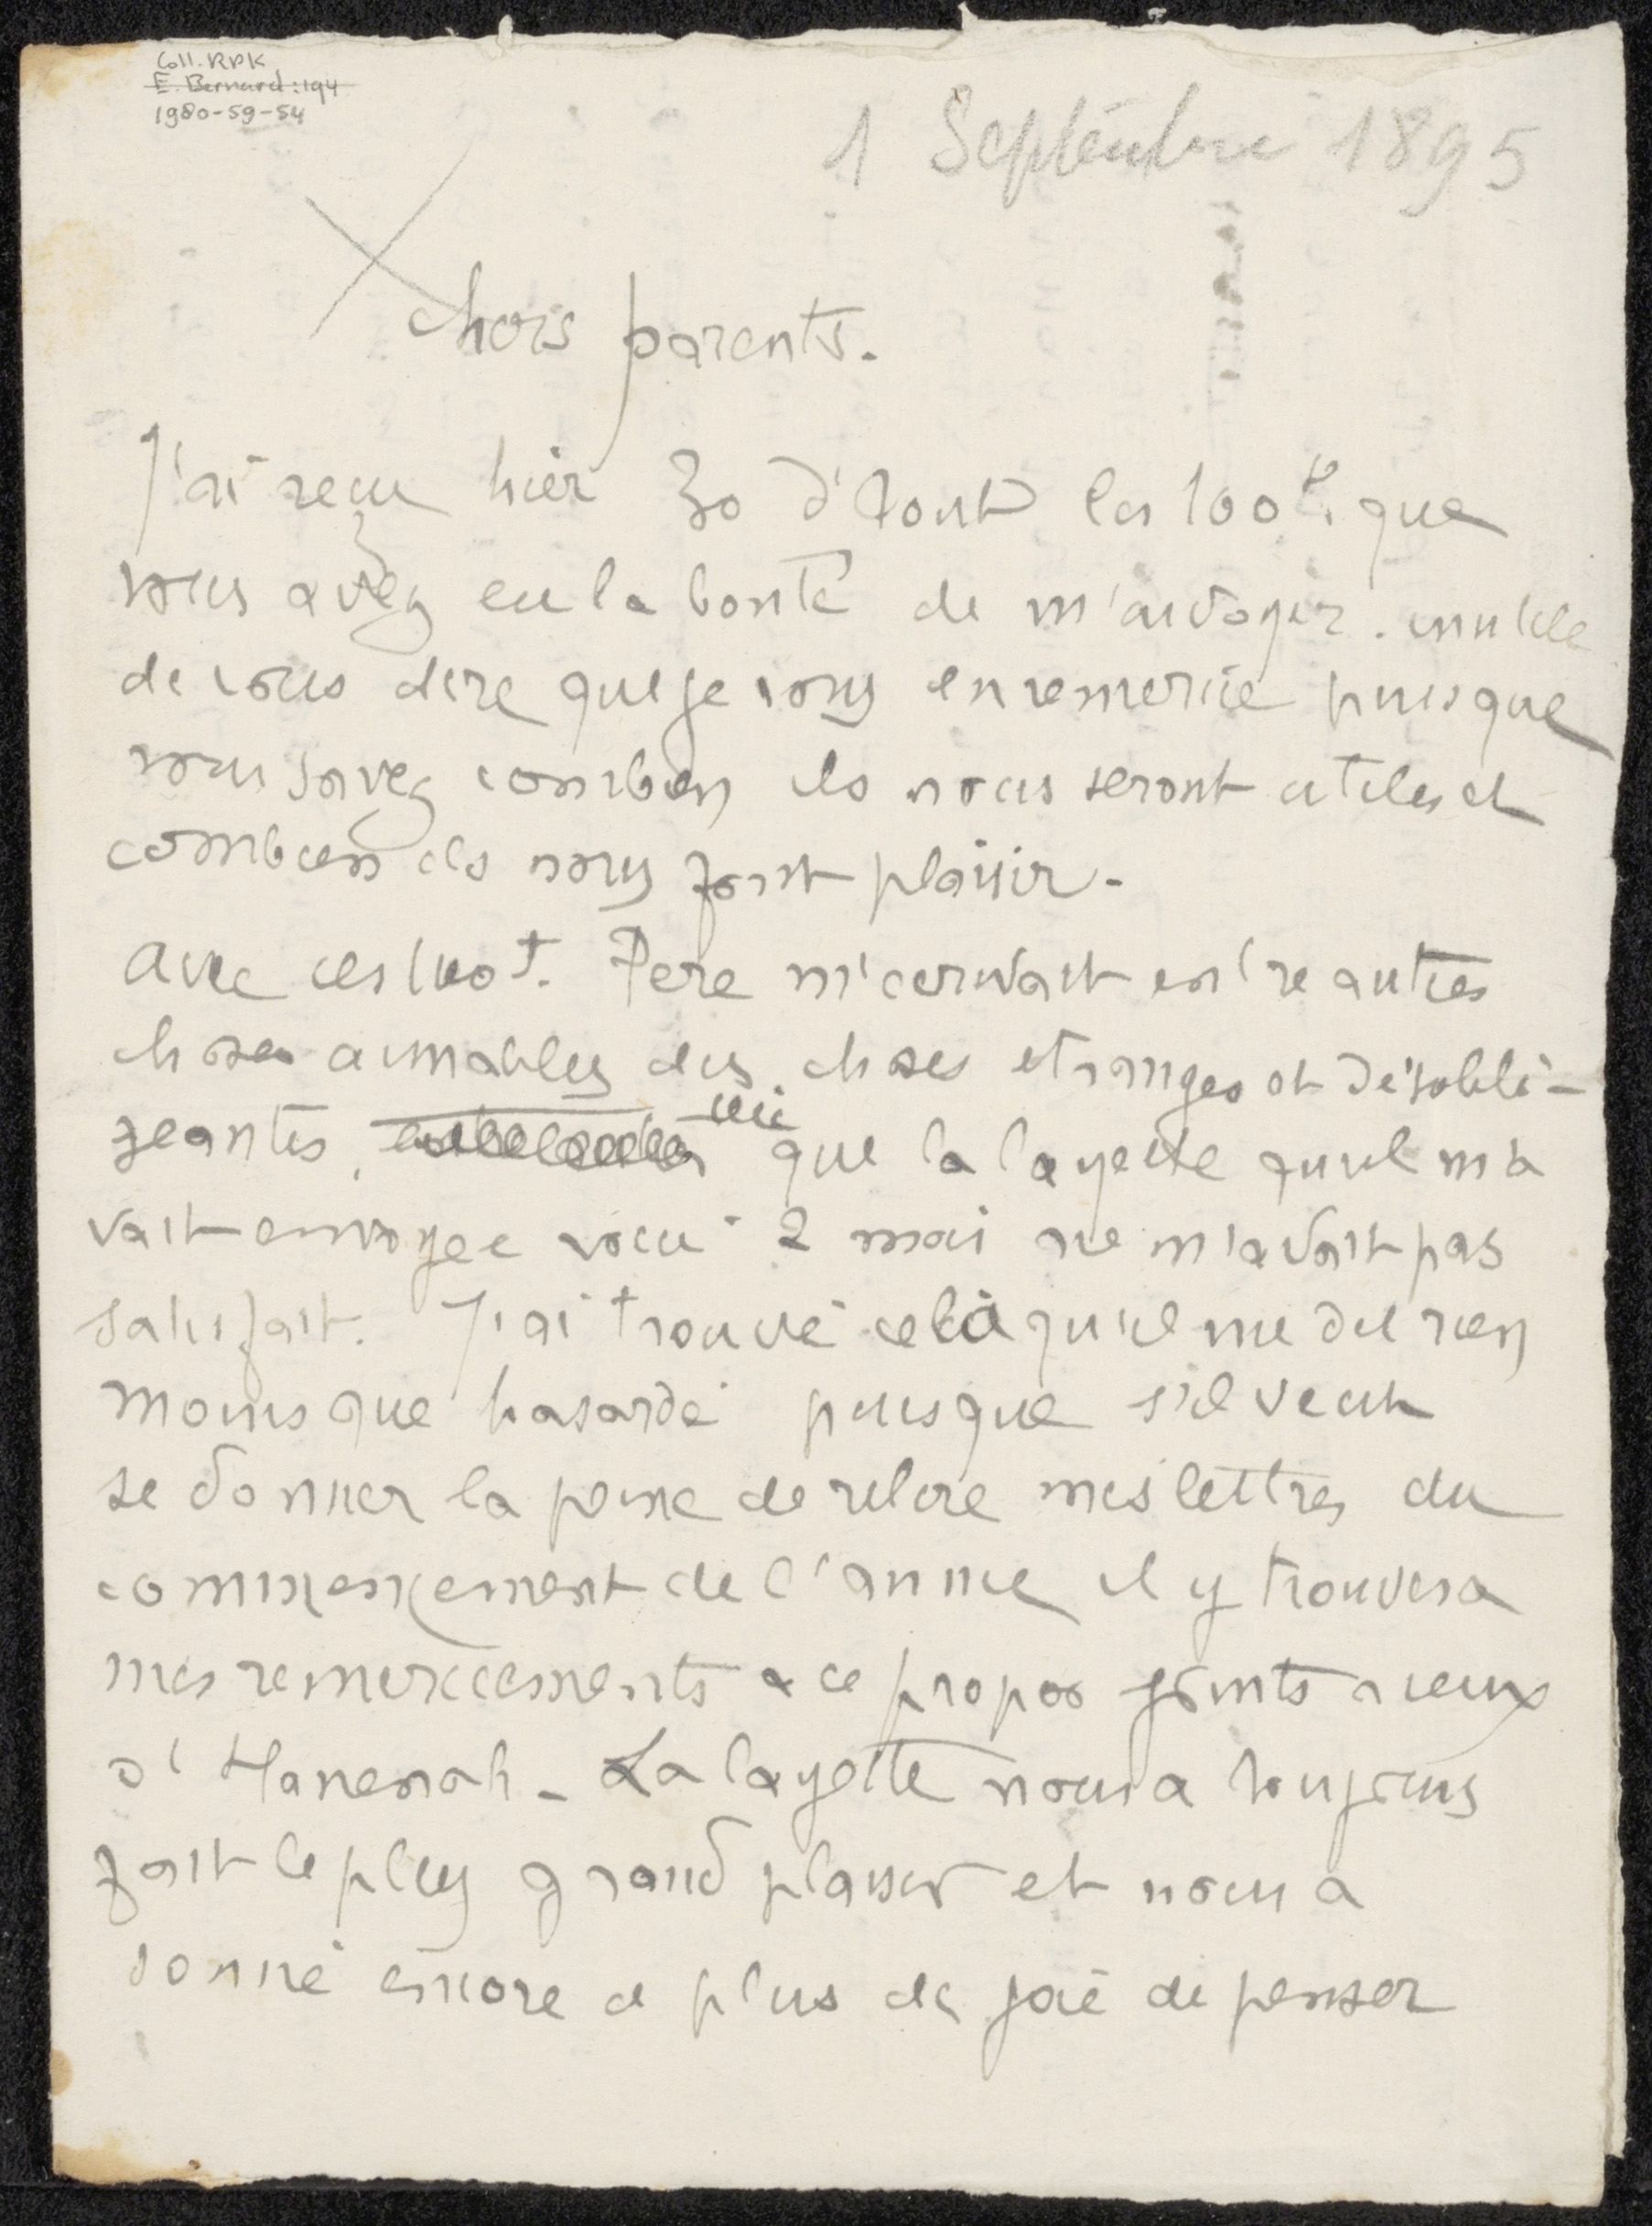 Coll. RPK
E. Bernard: 194
1980-59-54
1 Septembre 1895
chers parents.
J'ai reçu hier 30 d'Aout les 100f. que
vous avez eu la bonté de m'envoyer. inutile
de vous dire que je vous en remercie puisque
vous savez combien ils nous seront utiles et
combien ils nous font plaisir.
Avec ces 100f. Père m'ecrivait entre autres
choses aimables des choses etranges et désobli-
geantes, ceci que la layette qu'il m'a
vait envoyée voici 2 mois ne m'avait pas
satisfait. J'ai trouvé cela qu'il me dit rien
moins que hasardé puisque s'il veut
se donner la peine de relire mes lettres du
commencement de l'année il y trouvera
mes remerciements a ce propos joints a ceux
d'Hanenah - La layette nous a toujours
fait le plus grand plaisir et nous a
donné encore de plus de joie de penser